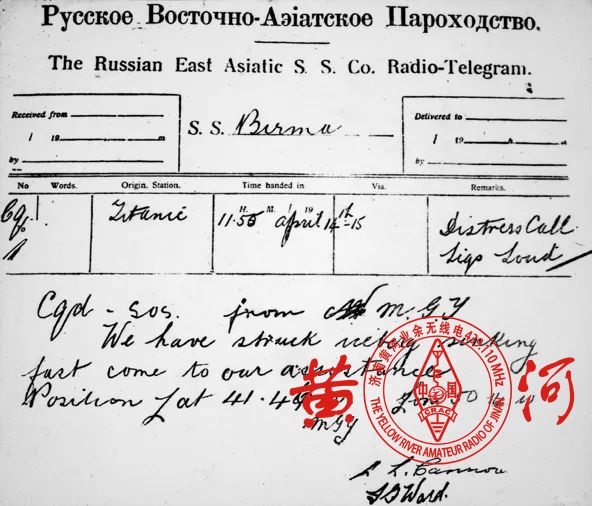 Русское Восточно-Азіатское Пароходство.
The Russian East Asiatic S. S. Co. Radio-Telegram.
Received from
1 19 m
by
S. S. Birma
Delivered to
1 19 m
by
No Words. Origin. Station. Time handed in Via. Remarks.
H. M. 1 19
Cqd Titanic 11.50 April 14th-15 Distress Call
Sigs Loud
Cqd - SOS. from M.G.Y
We have struck iceberg sinking
fast come to our assistance
Position Lat 41.46
MGY
Cannon
Ward.
黄河
济南黄河业余无线电 439.110 MHz
中国
CRAC
THE YELLOW RIVER AMATEUR RADIO OF JINAN